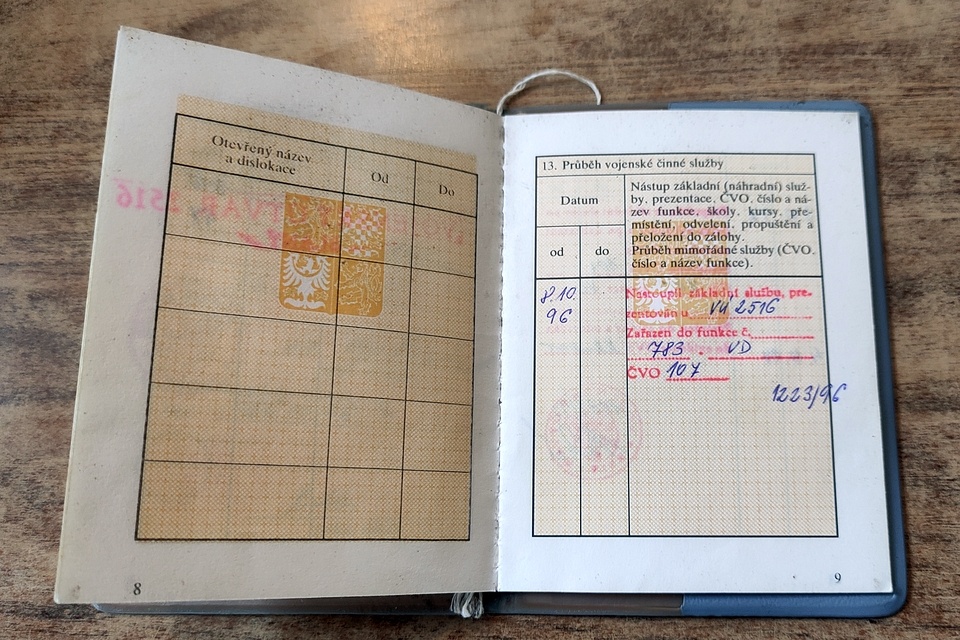 Otevřený název
a dislokace
Od
Do
8
13. Průběh vojenské činné služby
Datum
od
do
Nástup základní (náhradní) služ-
by, prezentace, ČVO, číslo a ná-
zev funkce, školy, kursy, pře-
místění, odvelení, propuštění a
přeložení do zálohy.
Průběh mimořádné služby (ČVO,
číslo a název funkce).
8.10.
96
Nastoupil základní službu, pre-
zentován u VÚ 2516
Zařazen do funkce č.
783 - VD
ČVO 107
1223/96
9